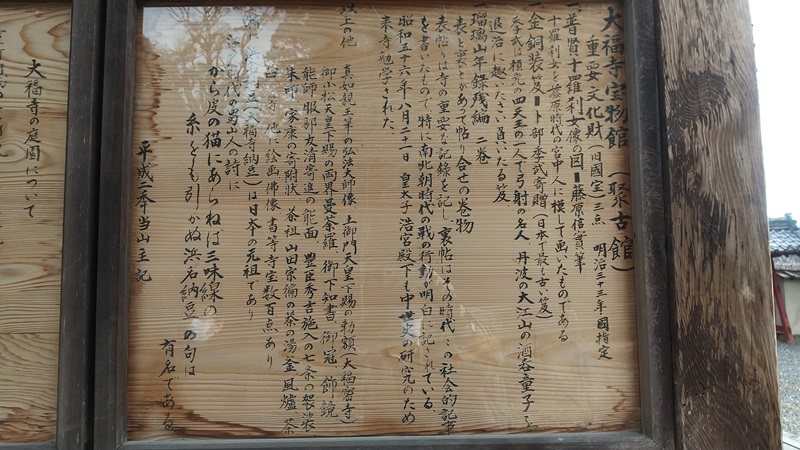 大福寺宝物館（聚古館）
重要文化財（旧国宝）三点　明治三十三年国指定
一、普賢十羅刹女像の図　藤原信実筆
十羅刹女を藤原時代の宮中人に模して画いたものである
一、金銅装笈　卜部季武寄贈（日本で最も古い笈）
季武は頼光の四天王の一人で弓射の名人　丹波の大江山の酒呑童子を
退治に趣いたさい負いたる笈
一、瑠璃山年録残編　二巻
表と裏とがあって帖り合せの巻物
表帖は寺の重要な記録を記し、裏帖はその時代の社会的記事
を書いたもので、特に南北朝時代の戦の行動が明白に記されている
昭和五十六年八月二十一日　皇太子浩宮殿下も中世史の研究のため
来寺勉学された
以上の他　真如親王筆の弘法大師像　土御門天皇下賜の勅額（大福密寺）
御小松天皇下賜の両界曼荼羅　御下知書　御冠　飾鏡
能師　服部友清寄進の能面　豊臣秀吉施入の七条の袈裟
朱印　家康の寄附状　茶祖　山田宗徧の茶の湯釜　風爐　茶
他に絵画　佛像　書等寺宝数百点あり
福寺納豆）は日本の元祖であり
時代の蜀山人の詩に
から皮の猫にあらねば三味線の
糸とも引かぬ浜名納豆の句は
有名である
平成二年当山主記
大福寺の庭園について